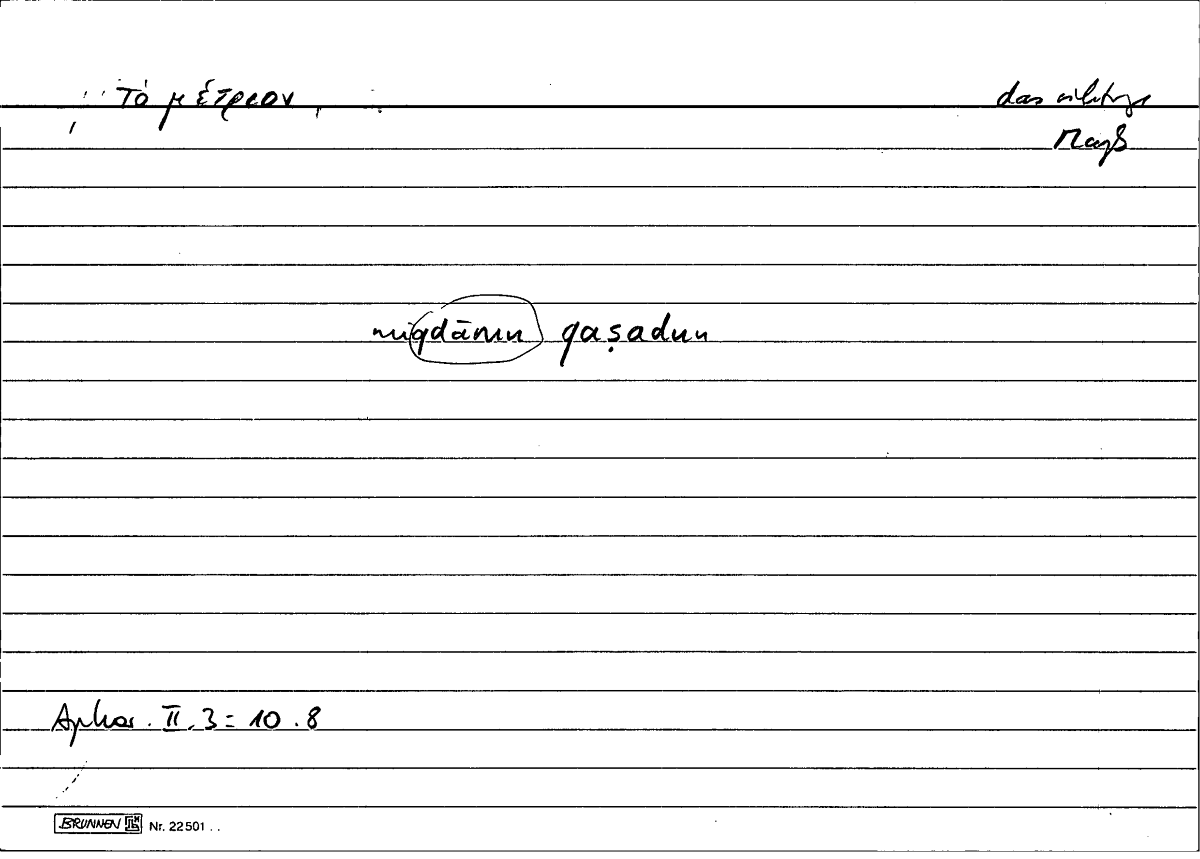 τὸ μέτριον,
das richtige
Maß
miqdārun qaṣadun
Aphor. II. 3 = 10.8
BRUNNEN Nr. 22501 . .